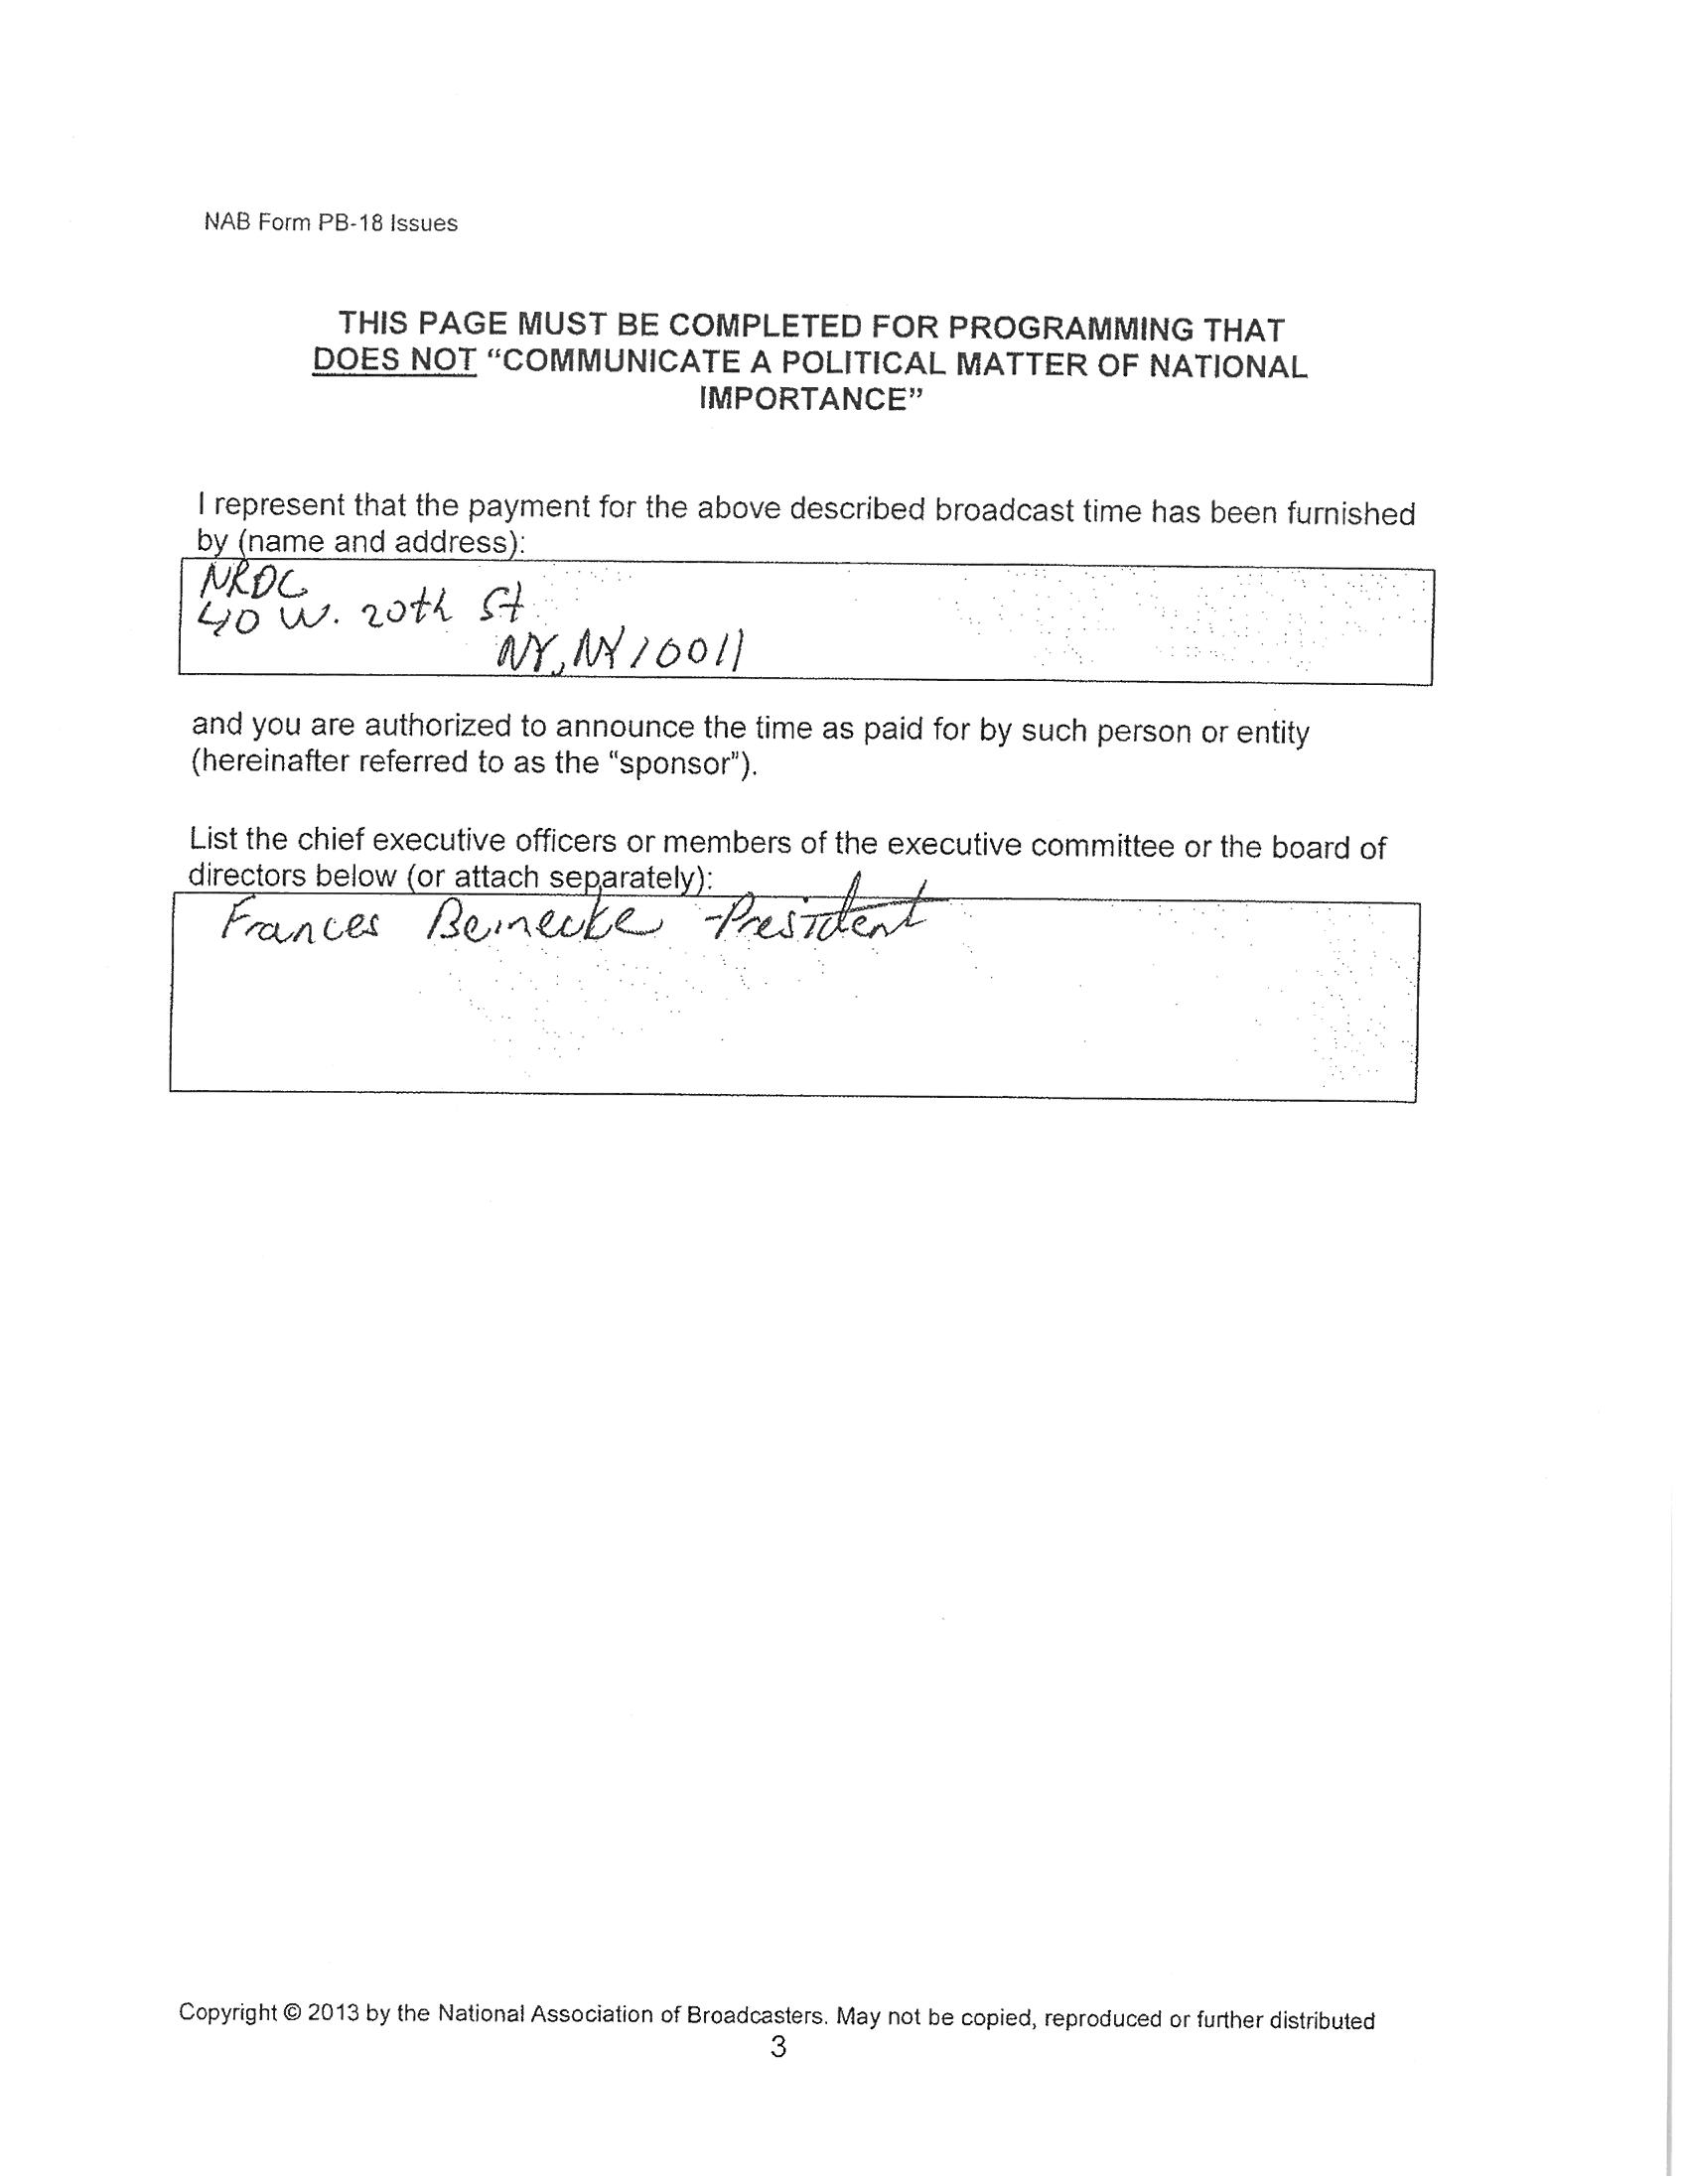 NAB Form PB-18 Issues
THIS PAGE MUST BE COMPLETED FOR PROGRAMMING THAT
DOES NOT “COMMUNICATE A POLITICAL MATTER OF NATIONAL
IMPORTANCE”
I represent that the payment for the above described broadcast time has been furnished
by (name and address):
NRDC
40 W. 20th St
NY, NY 10011
and you are authorized to announce the time as paid for by such person or entity
(hereinafter referred to as the “sponsor”).
List the chief executive officers or members of the executive committee or the board of
directors below (or attach separately):
Frances Beinecke - President
Copyright © 2013 by the National Association of Broadcasters. May not be copied, reproduced or further distributed
3